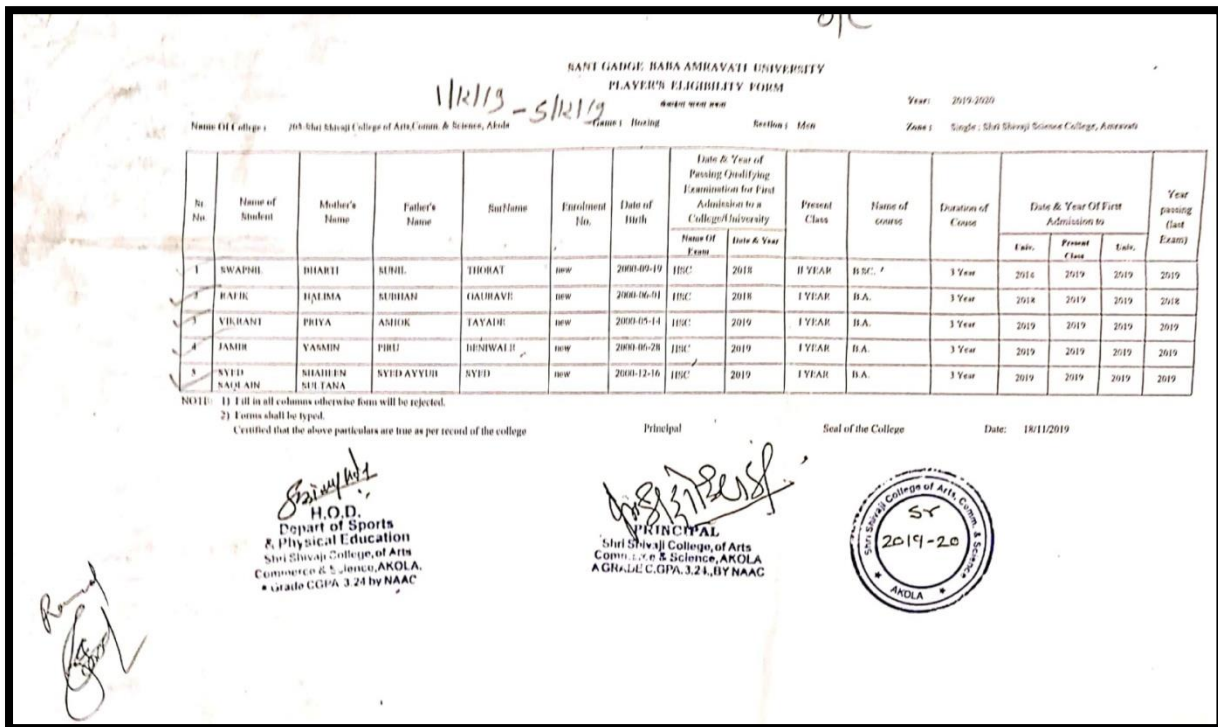 O/C
SANT GADGE BABA AMRAVATI UNIVERSITY
PLAYER'S ELIGIBILITY FORM
1/12/19 - 5/12/19
Year: 2019-2020
Name Of College : 203-Shri Shivaji College of Arts,Comm. & Science, Akola Game : Boxing Section : Men Zone : Single : Shri Shivaji Science College, Amravati
Sr. No. Name of Student Mother's Name Father's Name SurName Enrolment No. Date of Birth Date & Year of Passing Qualifying Examination for First Admission to a College/University Present Class Name of course Duration of Couse Date & Year Of First Admission to Year passing (last Exam)
Name Of Exam Date & Year Univ. Present Class Univ.
1 SWAPNIL BHARTI SUNIL THORAT new 2000-09-19 HSC 2018 II YEAR B SC. 3 Year 2018 2019 2019 2019
2 RAFIK HALIMA SUBHAN GAURAVE new 2000-06-01 HSC 2018 I YEAR B.A. 3 Year 2018 2019 2019 2018
3 VIKRANT PRIYA ASHOK TAYADE new 2000-05-14 HSC 2019 I YEAR B.A. 3 Year 2019 2019 2019 2019
4 JAMIR YASMIN PIRU BENIWALE new 2000-06-28 HSC 2019 I YEAR B.A. 3 Year 2019 2019 2019 2019
5 SYED SAQLAIN SHAHEEN SULTANA SYED AYYUB SYED new 2000-12-16 HSC 2019 I YEAR B.A. 3 Year 2019 2019 2019 2019
NOTE: 1) Fill in all columns otherwise form will be rejected.
2) Forms shall be typed.
Certified that the above particulars are true as per record of the college Principal Seal of the College Date: 18/11/2019
H.O.D.
Depart of Sports
& Physical Education
Shri Shivaji College, of Arts
Commerce & Science, AKOLA.
Grade CGPA 3.24 by NAAC
PRINCIPAL
Shri Shivaji College, of Arts
Commerce & Science, AKOLA
A GRADE C.GPA. 3.24., BY NAAC
Shri Shivaji College of Arts, Comm. & Science
SY
2019-20
AKOLA